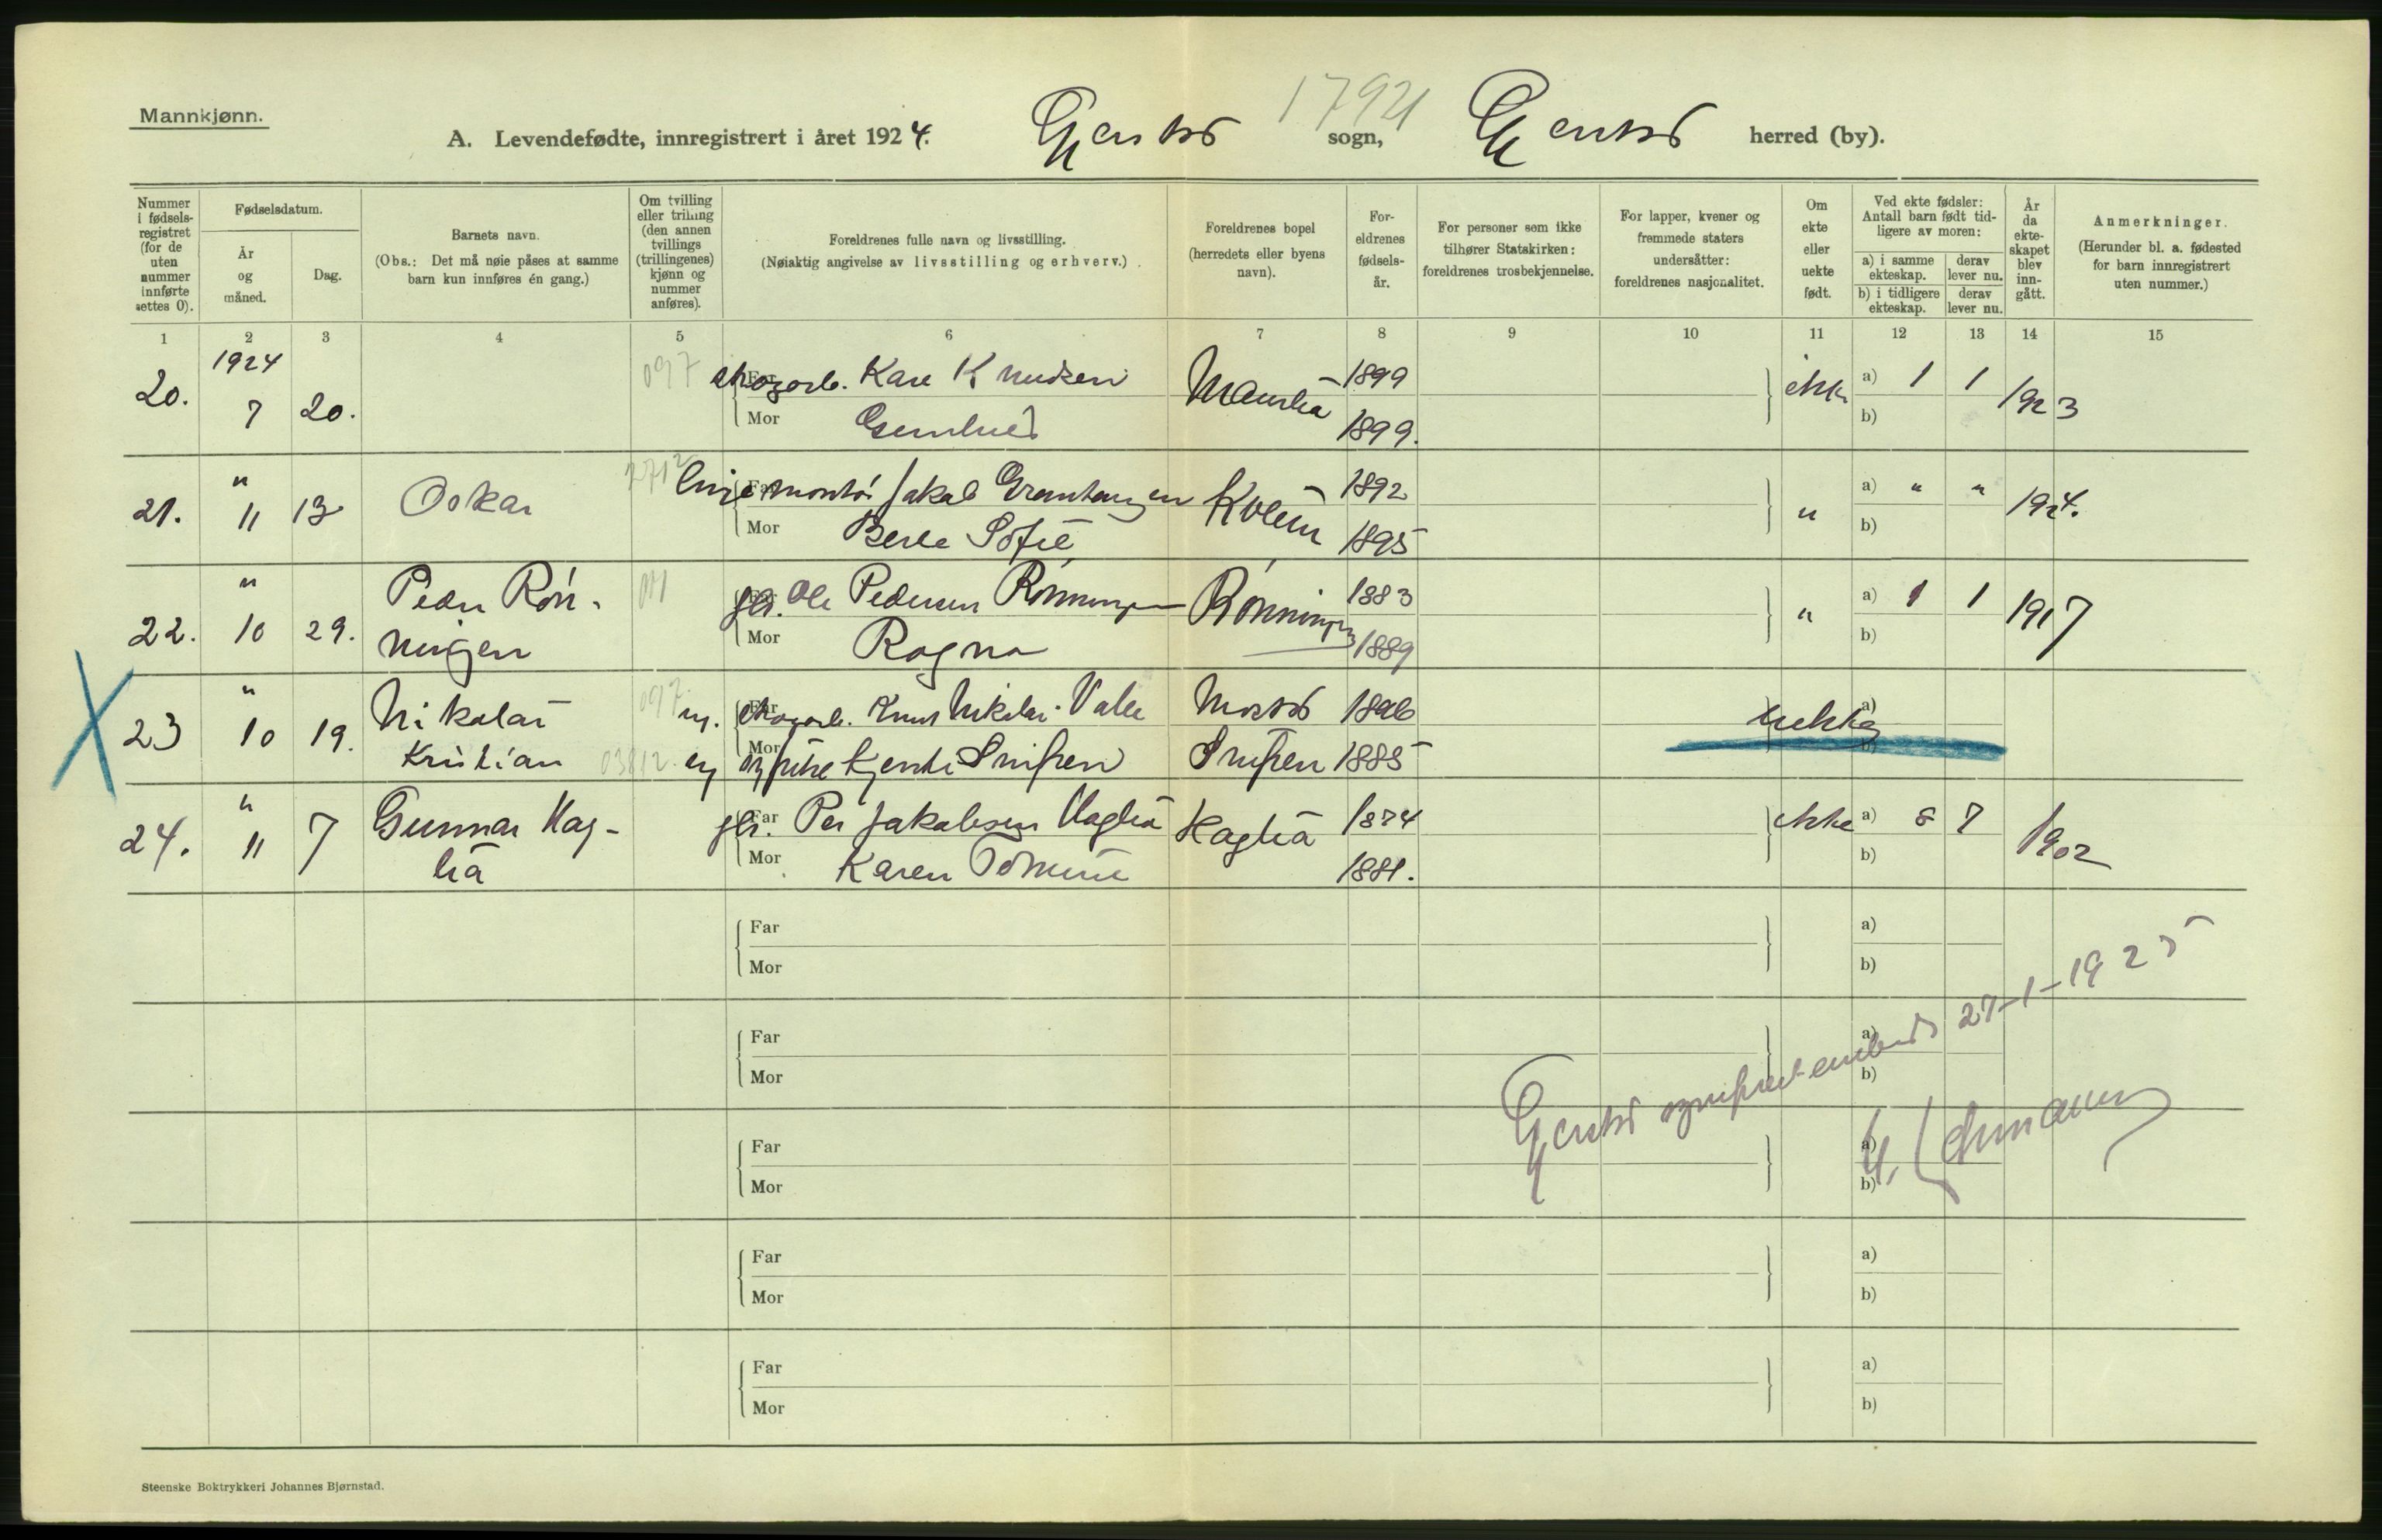 Mannkjønn.
1792
A. Levendefødte, innregistrert i året 1924. Gjerstad sogn, Gjerstad herred (by).
Nummer i fødselsregistret (for de uten nummer innførte settes 0).
Fødselsdatum.
År og måned.
Dag.
Barnets navn.
(Obs.: Det må nøie påses at samme barn kun innføres én gang.)
Om tvilling eller trilling (den annen tvillings (trillingenes) kjønn og nummer anføres).
Foreldrenes fulle navn og livsstilling.
(Nøiaktig angivelse av livsstilling og erhverv.)
Foreldrenes bopel
(herredets eller byens navn).
Foreldrenes fødselsår.
For personer som ikke tilhører Statskirken: foreldrenes trosbekjennelse.
For lapper, kvener og fremmede staters undersåtter: foreldrenes nasjonalitet.
Om ekte eller uekte født.
Ved ekte fødsler: Antall barn født tidligere av moren:
a) i samme ekteskap.
derav lever nu.
b) i tidligere ekteskap.
derav lever nu.
År da ekteskapet blev inngått.
Anmerkninger.
(Herunder bl. a. fødested for barn innregistrert uten nummer.)
1 2 3 4 5 6 7 8 9 10 11 12 13 14 15
20. 1924 7 20. 097 Far skogarb. Kare Knudsen 1899 ekte a) 1 1 1923
Mor Gunhild 1899. b)
21. " 11 13 Oskar Far linjemontør Jakob 1892 " a) " " 1924.
Mor Sofie 1895 b)
22. " 10 29. Peder Røn-
ningen
gbr. Ole Pedersen Rønningen Rønningen 1883 " a) 1 1 1917
Mor Ragna 1889 b)
23 " 10 19. Nikolai
Kristian
097 ug. Far skogarb. Knut Nikolai Valle 1896 uekte a)
03812 ug Mor 1885 b)
24. " 11 7 Gunnar Hag-
lia
Far gbr. Per Jakobsen Haglia Haglia 1874 ekte a) 8 7 1902
Mor Karen Tomine 1881. b)
Far a)
Mor b)
Far a)
Mor b)
Far a)
Mor b)
Far a)
Mor b)
Far a)
Mor b)
Gjerstad sogneprestembede 27-1-1925
Steenske Boktrykkeri Johannes Bjørnstad.